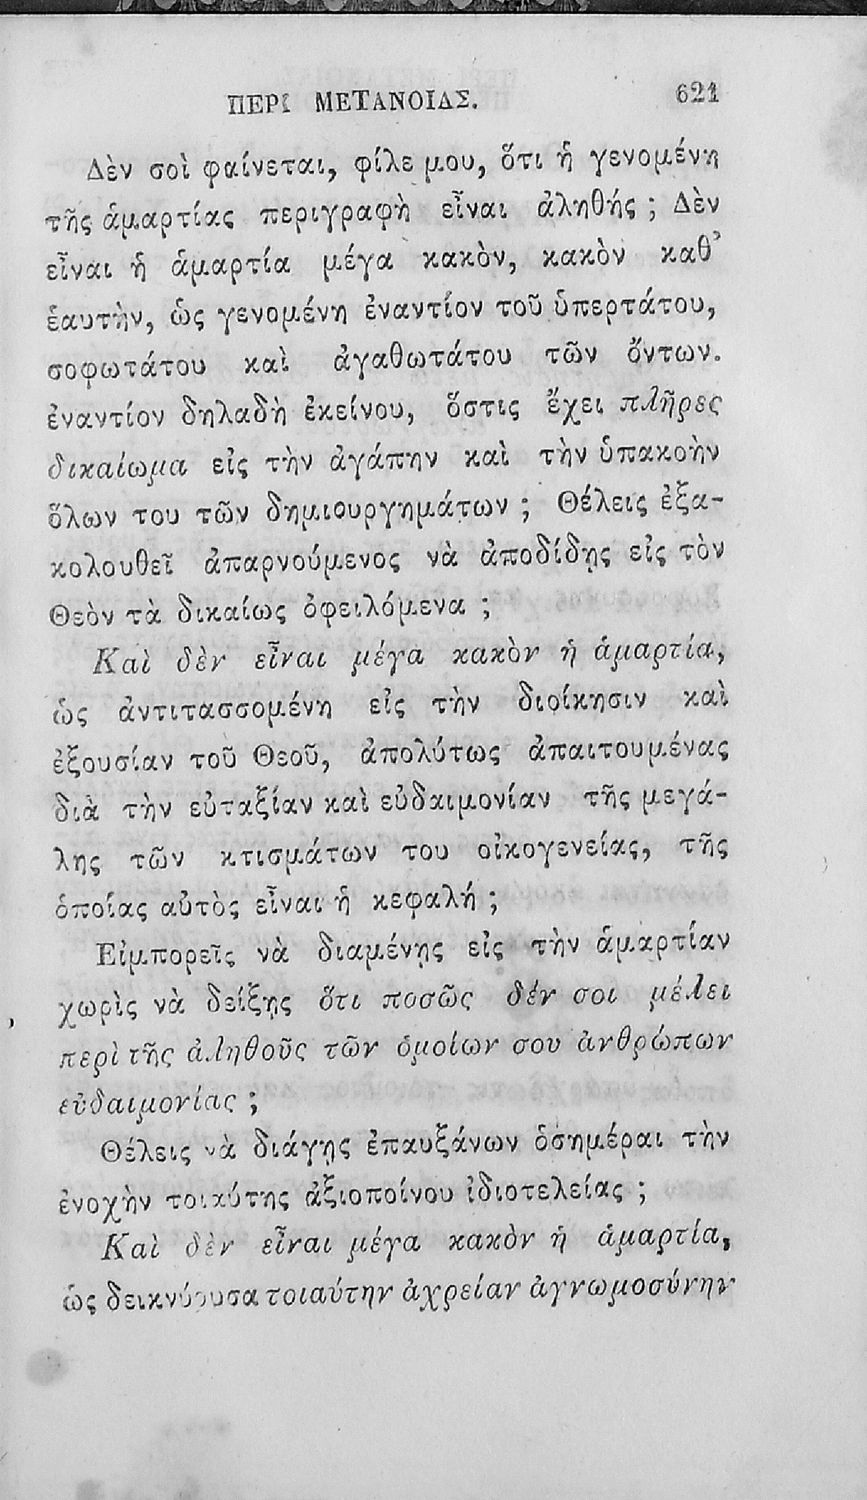 ΠΕΡΙ ΜΕΤΑΝΟΙΑΣ. 621
Δὲν σοὶ φαίνεται, φίλε μου, ὅτι ἡ γενομένη
τῆς ἁμαρτίας περιγραφὴ εἶναι ἀληθής ; Δὲν
εἶναι ἡ ἁμαρτία μέγα κακὸν, κακὸν καθ’
ἑαυτὴν, ὡς γενομένη ἐναντίον τοῦ ὑπερτάτου,
σοφωτάτου καὶ ἀγαθωτάτου τῶν ὄντων.
ἐναντίον δηλαδὴ ἐκείνου, ὅστις ἔχει πλῆρες
δικαίωμα εἰς τὴν ἀγάπην καὶ τὴν ὑπακοὴν
ὅλων του τῶν δημιουργημάτων ; Θέλεις ἐξα-
κολουθεῖ ἀπαρνούμενος νὰ ἀποδίδῃς εἰς τὸν
Θεὸν τὰ δικαίως ὀφειλόμενα ;
Καὶ δὲν εἶναι μέγα κακὸν ἡ ἁμαρτία,
ὡς ἀντιτασσομένη εἰς τὴν διοίκησιν καὶ
ἐξουσίαν τοῦ Θεοῦ, ἀπολύτως ἀπαιτουμένας
διὰ τὴν εὐταξίαν καὶ εὐδαιμονίαν τῆς μεγά-
λης τῶν κτισμάτων του οἰκογενείας, τῆς
ὁποίας αὐτὸς εἶναι ἡ κεφαλή ;
Εἰμπορεῖς νὰ διαμένῃς εἰς τὴν ἁμαρτίαν
χωρὶς νὰ δείξῃς ὅτι ποσῶς δέν σοι μέλει
περὶ τῆς ἀληθοῦς τῶν ὁμοίων σου ἀνθρώπων
εὐδαιμονίας ;
Θέλεις νὰ διάγῃς ἐπαυξάνων ὁσημέραι τὴν
ἐνοχὴν τοιαύτης ἀξιοποίνου ἰδιοτελείας ;
Καὶ δὲν εἶναι μέγα κακὸν ἡ ἁμαρτία,
ὡς δεικνύουσα τοιαύτην ἀχρείαν ἀγνωμοσύνην